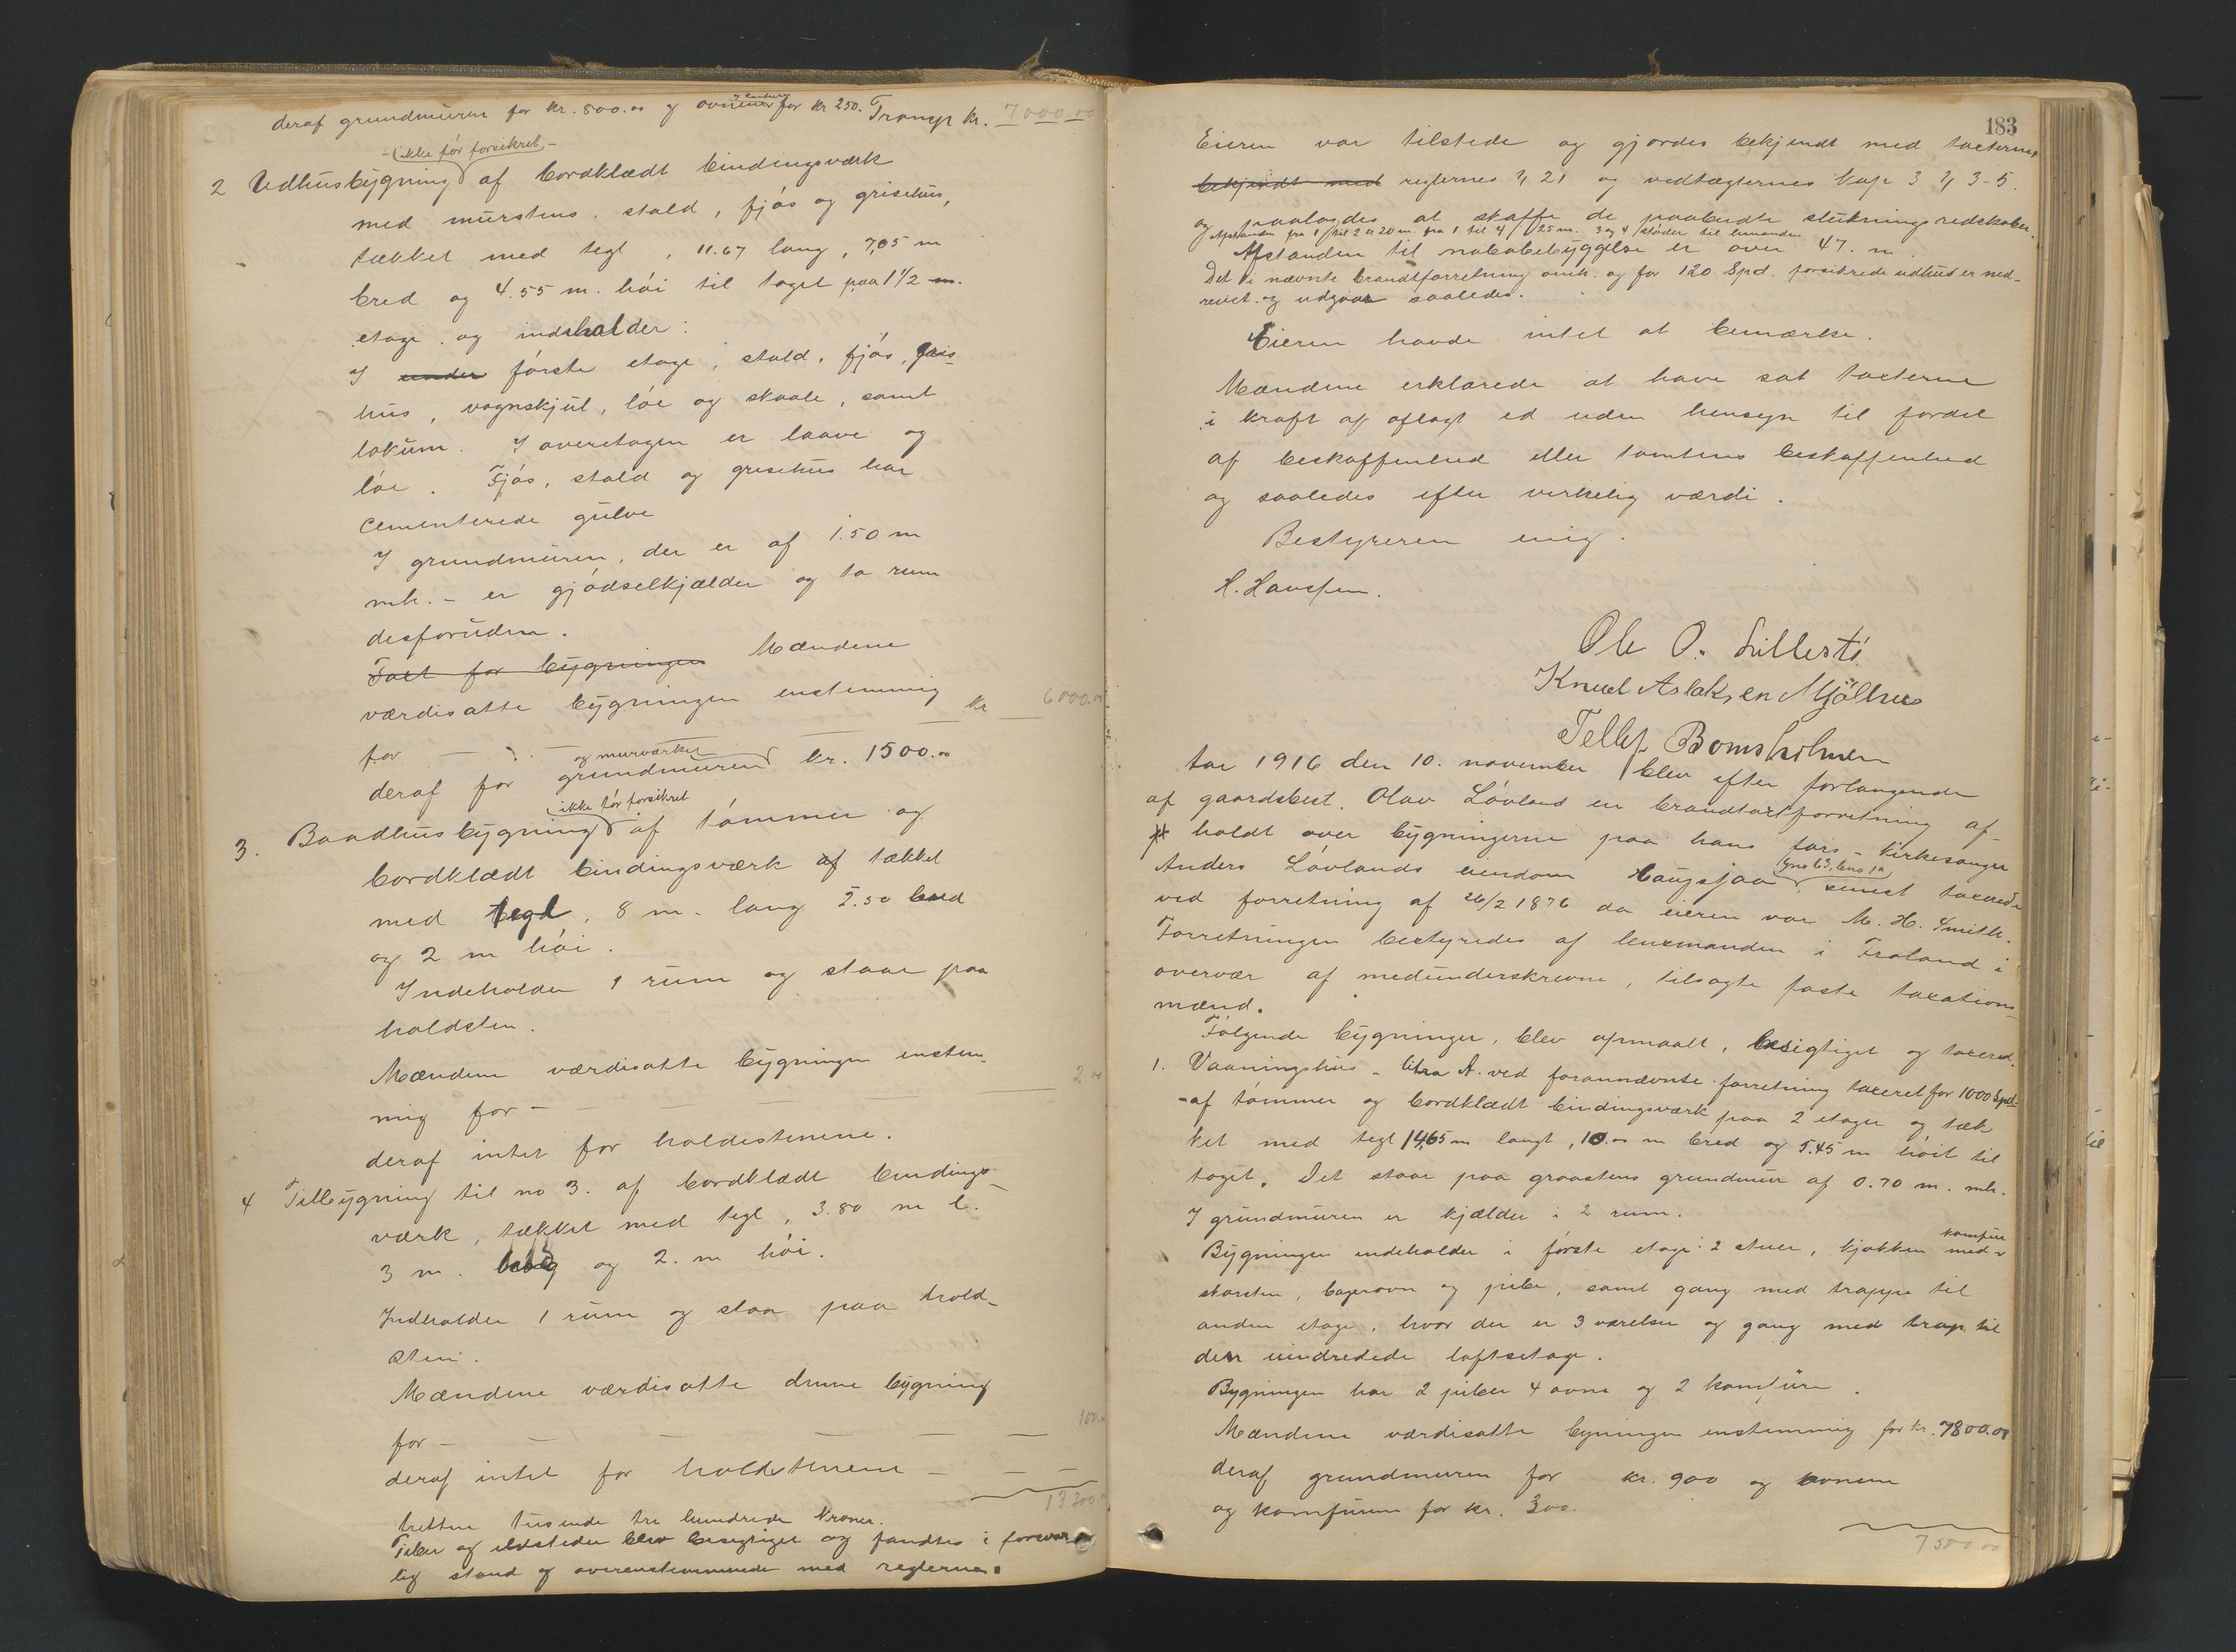 deraf grundmuren for kr. 800.00 og ovnene for kr 250. Transp kr. 7000.00
ikke før forsikret
2 Udhusbygning af bordklædt bindingsværk
med murstens stald, fjøs og grisehus,
tækket med tegl, 11.67 lang, 7,05 m
bred og 4.55 m. høi til taget paa 1 1/2 m.
etage og indeholder:
I under første etage, stald, fjøs, gris-
hus, vognskjul, løe og skaale, samt
lokum. I overetagen er laave og
løe. Fjøs, stald og grisehus har
cementerede gulve
I grundmuren, der er af 1.50 m
mh. - er gjødselkjælder og to rum
desforuden.
Taxt for bygningen Mændene
værdisatte bygningen enstemmig
for kr 6000.00
og murværket
deraf for grundmuren kr. 1500.00
ikke før forsikret
3. Baadhusbygning af tømmer og
bordklædt bindingsværk af tækket
med tegl, 8 m. lang 2.50 bred
og 2 m høi.
Indeholder 1 rum og staar paa
holdsten.
Mændene værdisatte bygningen enstem-
mig for 2 00
deraf intet for holdestenene.
4 Tilbygning til no 3. af bordklædt bindings-
værk, tækket med tegl, 3.80 m l.
3 m. og 2. m høi.
Indholder 1 rum og staar paa hold-
sten.
Mændene værdisatte denne bygning
for 100.00
deraf intet for holdstenene
13300.00
tretten tusinde tre hundrede kroner.
Piber og ildsteder blev besigtiget og fandtes i forsvar-
lig stand og overenstemmende med reglerne.
183
Eieren var tilstede og gjordes bekjendt med taxterne,
bekjendt med reglernes § 21 og vedtægternes kap 3 § 3-5.
og paalagdes at skaffe de paabudte slukningsredskaber.
Afstanden fra 1 til 2 er 20 m. fra 1 til 4 25 m. 3 og 4 støder til hinanden
Afstanden til nabobebyggelse er over 47. m.
Det i nævnte brandtforretning omh. og for 120 Spd. forsikrede udhus er ned-
revet og udgaar saaledes.
Eieren havde intet at bemærke.
Mændene erklærede at have sat taxterne
i kraft af aflagt ed uden hensyn til fordel
af beskaffenhed eller tomtens beskaffenhed
og saaledes efter virkelig værdi.
Bestyreren enig.
H. Hansen.
Ole O. Lillesti
Knud Aslaksen Mjølhus
Tellef Bomsholmen
Aar 1916 den 10. november blev efter forlangende
af gaardsbest. Olav Løvland en brandtaxtforretning af-
holdt over bygningerne paa hans fars - kirkesanger
gno 63, bno 1a
Anders Løvlands eiendom Haugsjaa senest taxerede
ved forretning af 26/2 1876 da eieren var M. H. Smith.
Forretningen bestyredes af lensmanden i Froland i
overvær af medunderskrevne, tilsagte faste taxations-
mænd.
Følgende bygninger, blev opmaalt, besigtiget og taxered.
1. Vaaningshus - litra A. ved forannævnte forretning taxeret for 1000 Spd.
- af tømmer og bordklædt bindingsværk paa 2 etager og tæk
ket med tegl 14,65 m langt, 10.00 m bred og 5.45 m høit til
taget. Det staar paa graastens grundmur af 0.70 m. mh.
I grundmuren er kjælder i 2 rum.
komfur
Bygningen indeholder i første etage: 2 stuer, kjøkken med
skorsten, bagerovn og pibe, samt gang med trappe til
anden etage, hvor der er 3 værelser og gang med trap til
den uindredede loftsetage.
Bygningen har 2 piber 4 ovne og 2 komfure.
Mændene værdisatte bygningen enstemmig for kr. 7800.00
deraf grundmuren for kr. 900 og ovnene
og komfuren for kr. 300.
7500.00